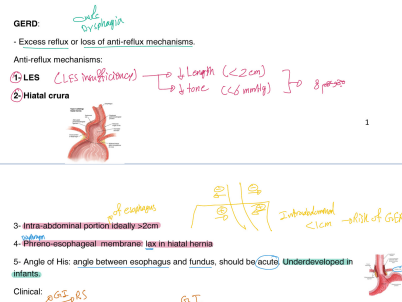 GERD:
- Excess reflux or loss of anti-reflux mechanisms.
Anti-reflux mechanisms:
1- LES (LES insufficiency) ↓ Length (<2cm)
↓ tone (<6 mmHg)
2- Hiatal crura
1
of esophagus
3- Intra-abdominal portion ideally >2cm
Intraabdominal <1cm → Risk of GERD
4- Phreno-esophageal membrane: lax in hiatal hernia
5- Angle of His: angle between esophagus and fundus, should be acute. Underdeveloped in
infants.
Clinical: GI RS